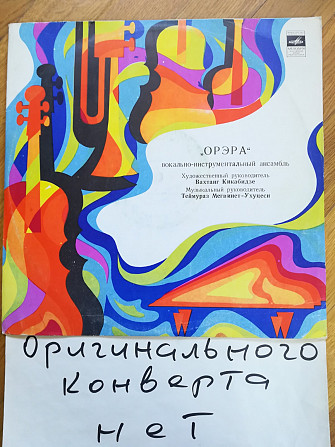 „ОРЭРА"
вокально-инструментальный ансамбль
Художественный руководитель
Вахтанг Кикабидзе
Музыкальный руководитель
Теймураз Мегвинет-Ухуцеси
Оригинального
конверта
нет